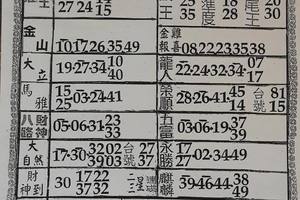 王 27 24 12 15 35 進度 28 尾王 20
金山 10 17 26 35 49 金雞報喜 08 22 23 35 38
大立 19-27-34 10 40 龍人 22-24-32-34 07 17
馬雅 15 25 03-24-41 榮順 28-26-41 45 14 台號 81 15
八路財神 05-06-31 23 33 五富 03-06-19 37 39
大自然 17-30 32 02 39 03 台號 27 37 永勝 17 27 02-34-49
財神到 30 17 22 32 22 二三星 麒麟 39-46-44 38 49